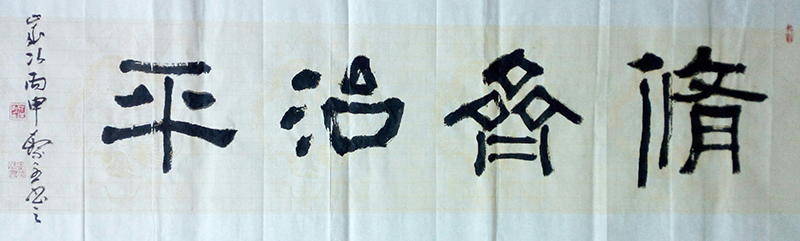 脩齊治平
歲次丙申